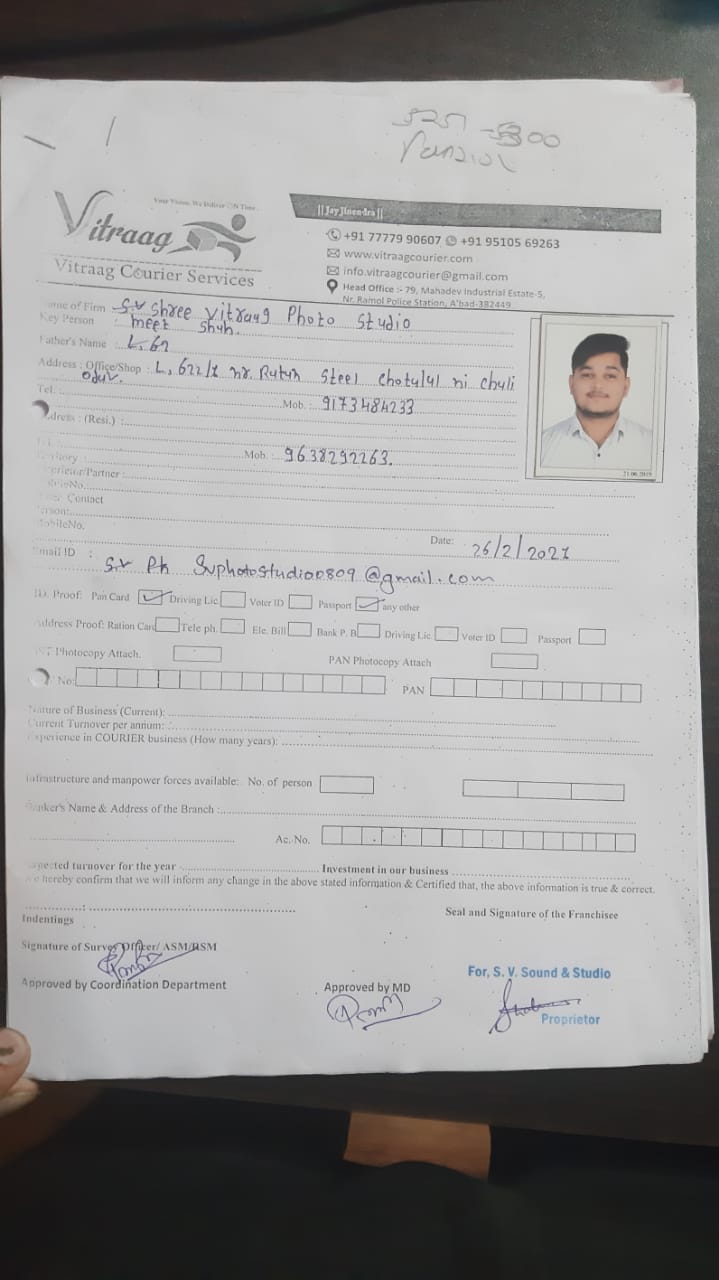 Your Vision, We Deliver ON Time
Vitraag
Vitraag Courier Services
|| Jay Jinendra ||
+91 77779 90607 +91 95105 69263
www.vitraagcourier.com
info.vitraagcourier@gmail.com
Head Office :- 79, Mahadev Industrial Estate-5,
Nr. Ramol Police Station, A'bad-382449
Name of Firm S.V Shree Vitraag Photo Studio
Key Person : meet Shah.
Father's Name :
Address : Office/Shop : L, 622/1 nr. Rutuh Steel Chotulul ni Chuli
odhv.
Tel. : Mob. : 9173484233
Address : (Resi.) :
Mob. : 9638292263.
21.06.2019
Contact
MobileNo.
Date: 26/2/2021
Email ID : S.V Ph Svphotostudio0809@gmail.com
ID. Proof: Pan Card Driving Lic Voter ID Passport any other
Address Proof: Ration Card Tele ph. Ele. Bill Bank P. B Driving Lic. Voter ID Passport
Photocopy Attach. PAN Photocopy Attach
No: PAN
Nature of Business (Current):
Current Turnover per annum:
Experience in COURIER business (How many years):
Infrastructure and manpower forces available: No. of person
Banker's Name & Address of the Branch :
Ac. No.
Expected turnover for the year Investment in our business
hereby confirm that we will inform any change in the above stated information & Certified that, the above information is true & correct.
Indentings
Seal and Signature of the Franchisee
Signature of Survey Officer/ ASM/RSM
Approved by Coordination Department
Approved by MD
For, S. V. Sound & Studio
Proprietor